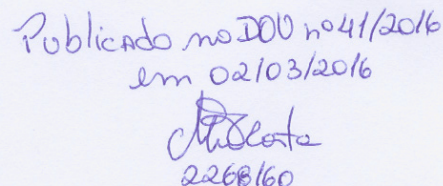 Publicado no DOU nº 41/2016
em 02/03/2016
2268160